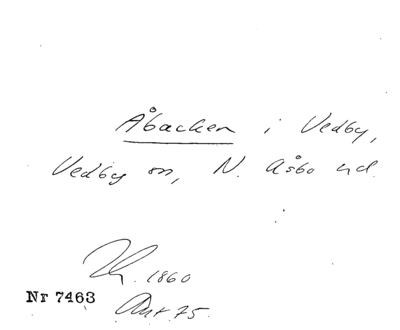 Åbacken i Vedby,
Vedby sn, N. Åsbo hd.
1860
Nr 7463
Ant 75.